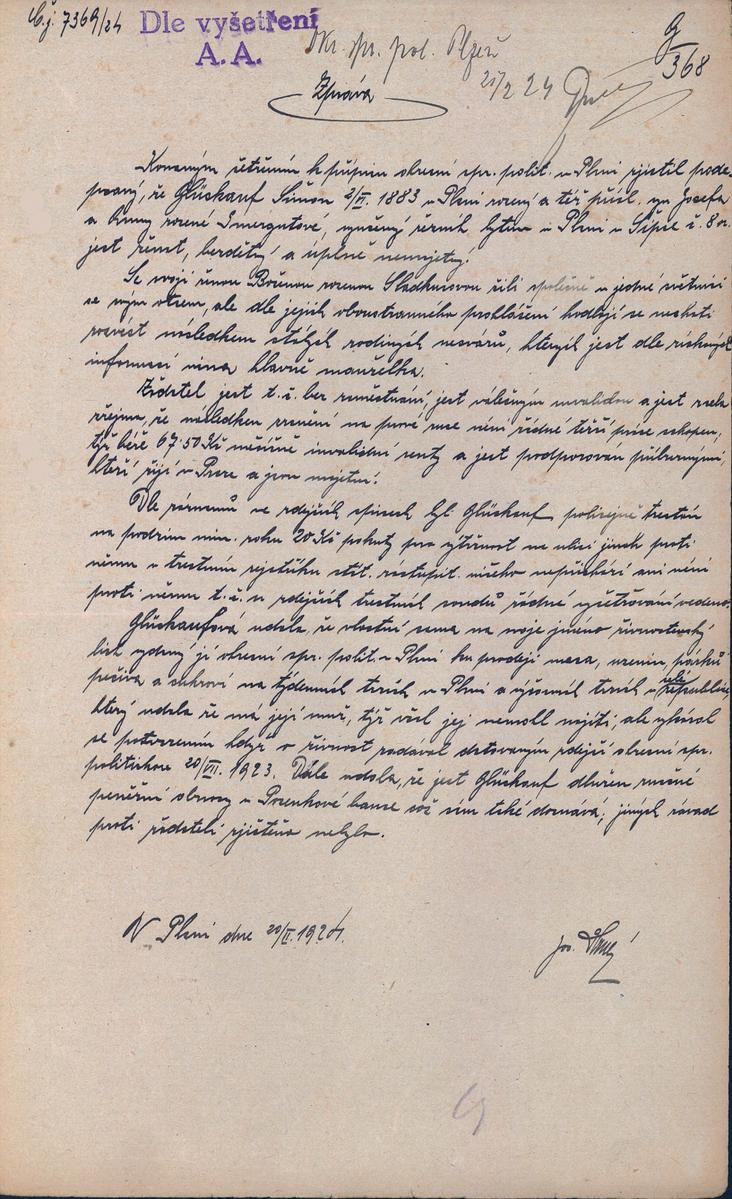 Č.j. 7369/24
Dle vyšetření
A. A.
Okr. spr. pol. Plzeň
21/2 24
G/368
Zpráva
Konaným šetřením k přípisu okresní spr. polit. v Plzni zjistil pode-
psaný, že Glückauf Šimon 2/VI. 1883 v Plzni rozený a též přísl. syn Josefa
a Anny rozené Imergutové, vyučený řezník bytem v Plzni v č. 8
jest ženat, bezdětný a úplně nemajetný.
Se svojí ženou Boženou rozenou žili společně v jedné světnici
se svým otcem, ale dle jejich oboustranného prohlášení hodlají se nechati
rozvést následkem stálých rodinných nesvárů, kterých jest dle získaných
informací vina hlavně manželka.
Žadatel jest t.č. bez zaměstnání, jest válečným invalidou a jest zcela
zřejmo, že následkem zranění na pravé ruce není řádné těžší práce schopen,
týž béře 67·50 Kč měsíčně invalidní renty a jest podporován příbuznými,
kteří žijí v Praze a jsou majetní.
Dle záznamů ve zdejších spisech byl Glückauf policejně trestán
na podzim min. roku 20 Kč pokuty pro výtržnost na ulici jinak proti
němu v trestním rejstříku stát. zástupit. ničeho nepřichází ani není
proti němu t.č. u zdejších trestních soudů žádné vyšetřování vedeno.
Glückaufová udala, že vlastní sama na svoje jméno živnostenský
list vydaný jí okresní spr. polit. v Plzni ku prodeji masa, uzenin, párků
pečiva a cukroví na týdenních trzích v Plzni a výročních trzích v celé republice,
který udala že má její muž, týž však jej nemohl najíti, ale vykázal
se potvrzením když o živnost zadával datovaným zdejší okresní spr.
politickou 20/VII. 1923. Dále udala, že jest Glückauf dlužen značné
peněžní obnosy v bance což sám také doznává; jiných závad
proti žadateli zjištěno nebylo.
V Plzni dne 20/II. 1924.